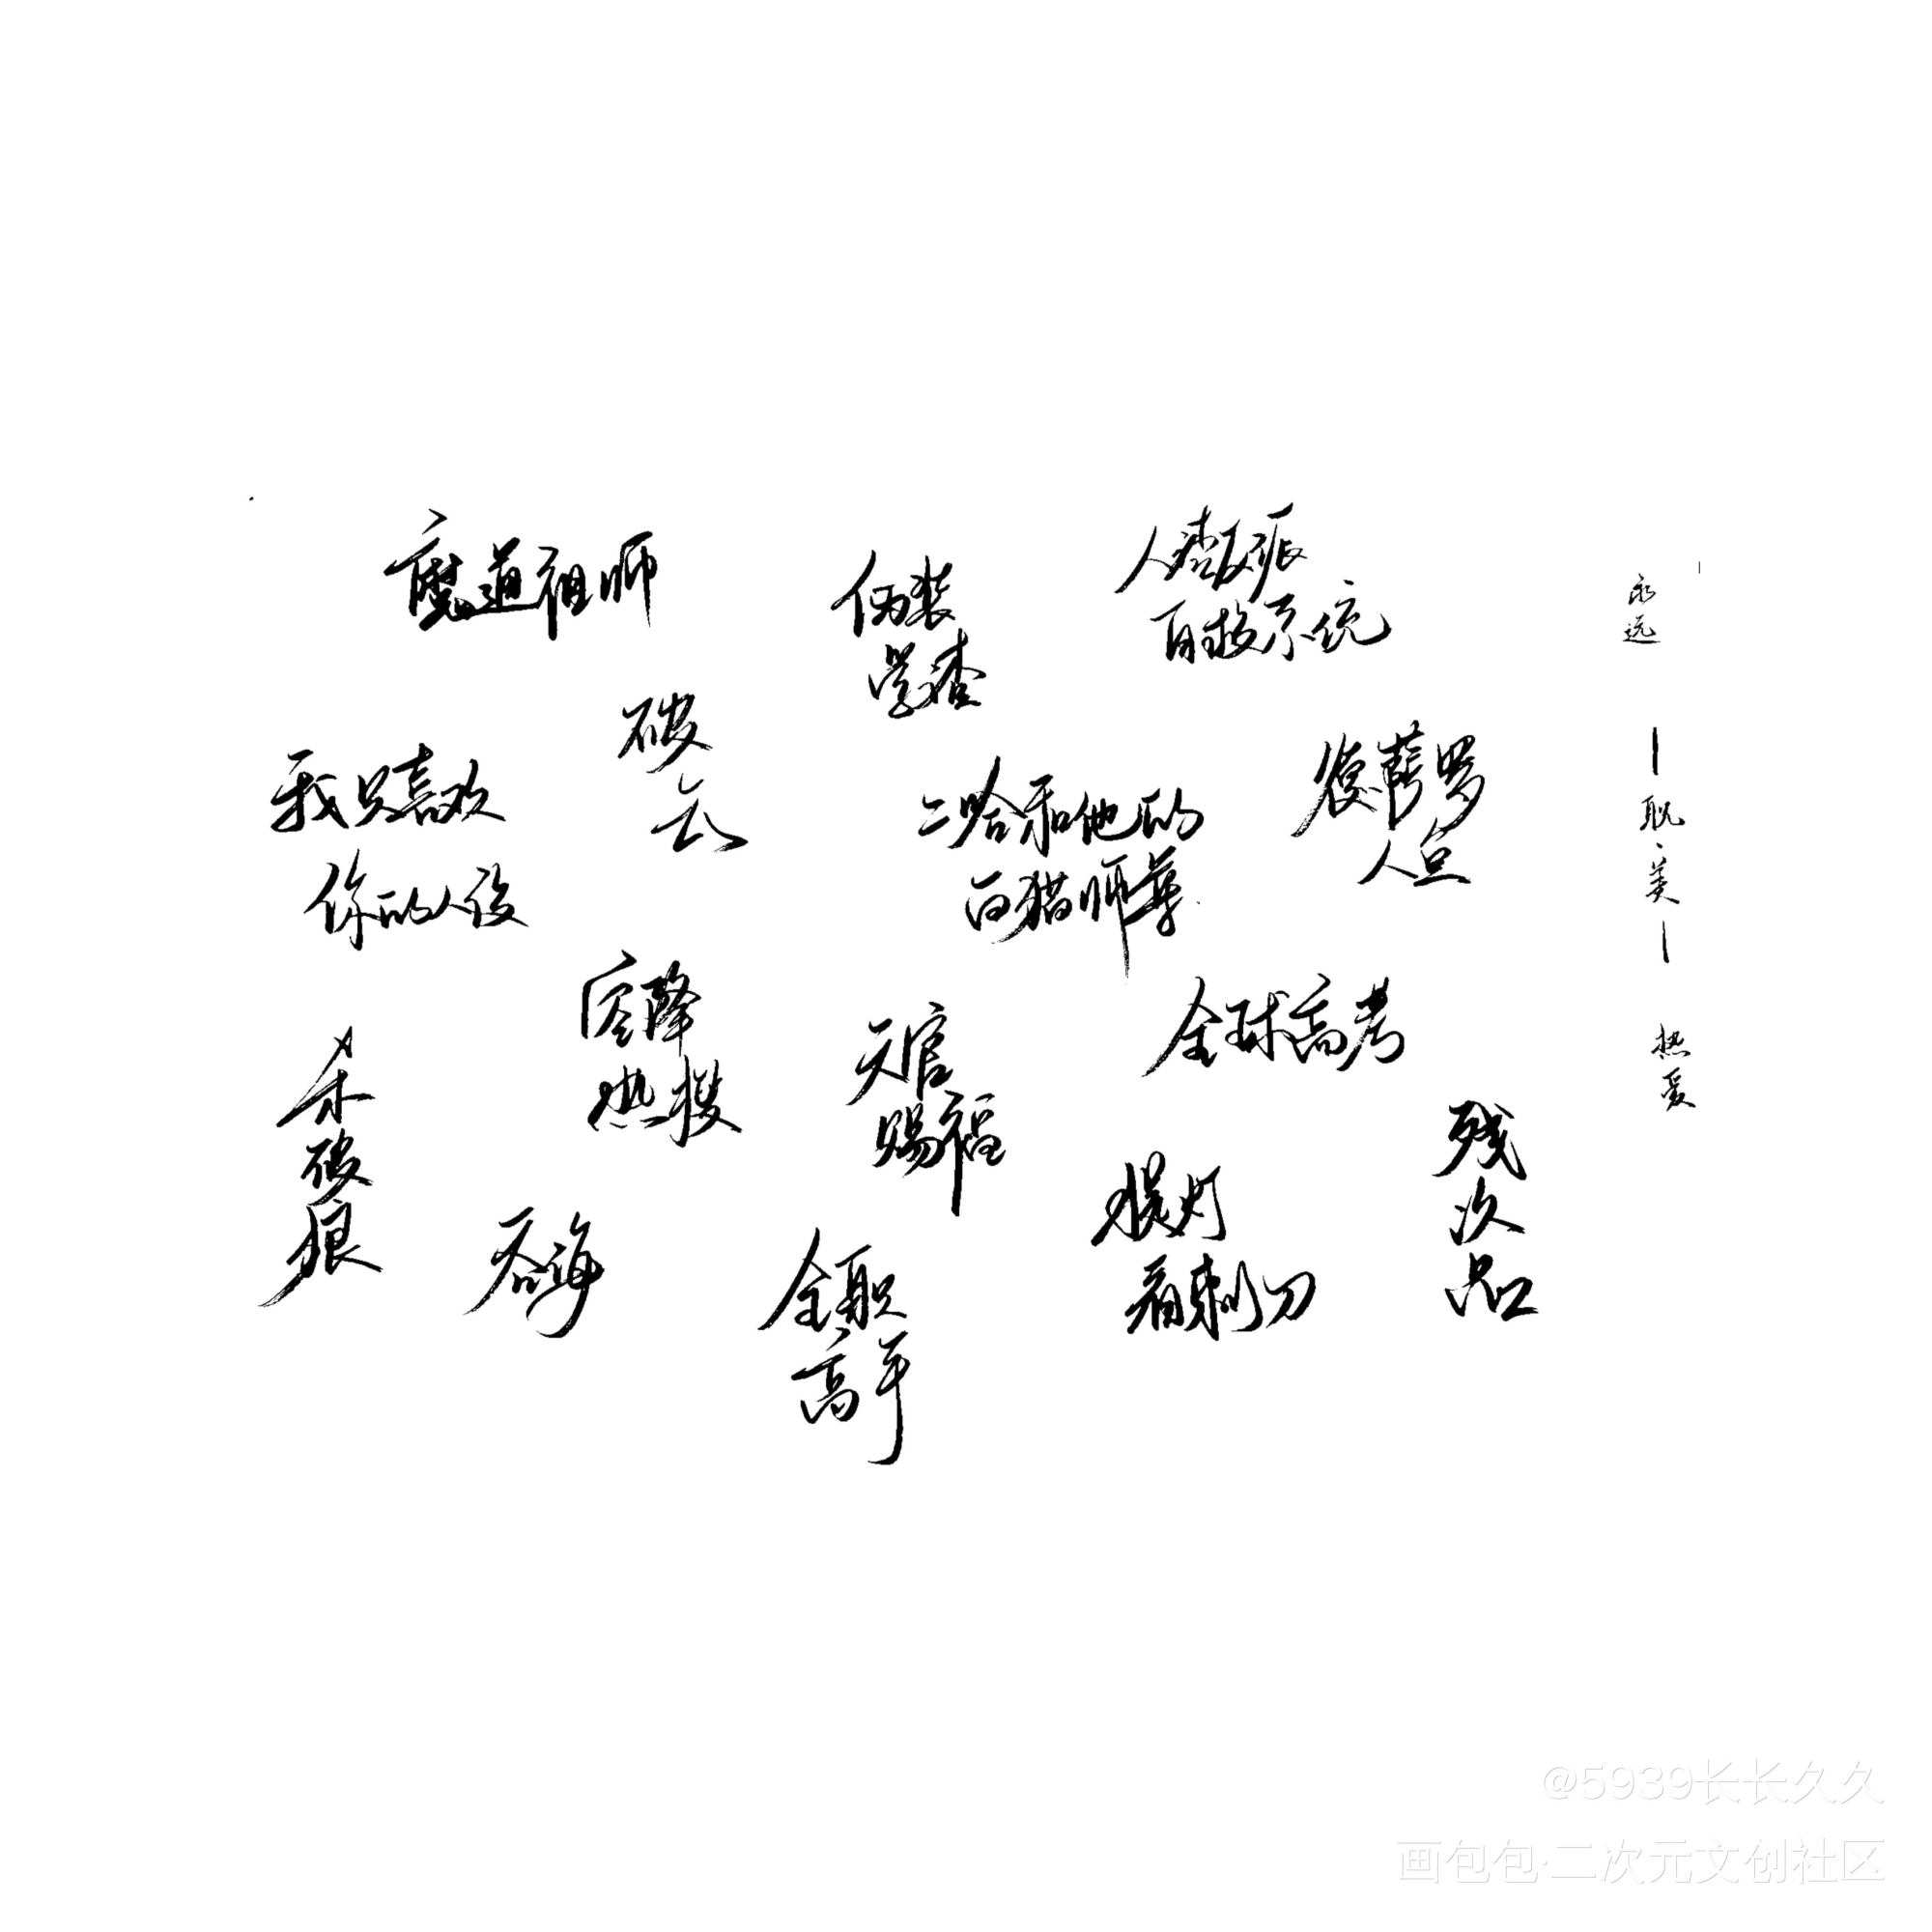 魔道祖师
伪装
学渣
人渣反派
自救系统
破
云
我只喜欢
你的人设
二哈和他的
白猫师尊
修普罗
人
空降
热搜
天官
赐福
全球高考
杀
破
狼
吞海
全职
高手
提灯
看刺刀
残
次
品
永远
耽美
热爱
@5939长长久久
画包包·二次元文创社区